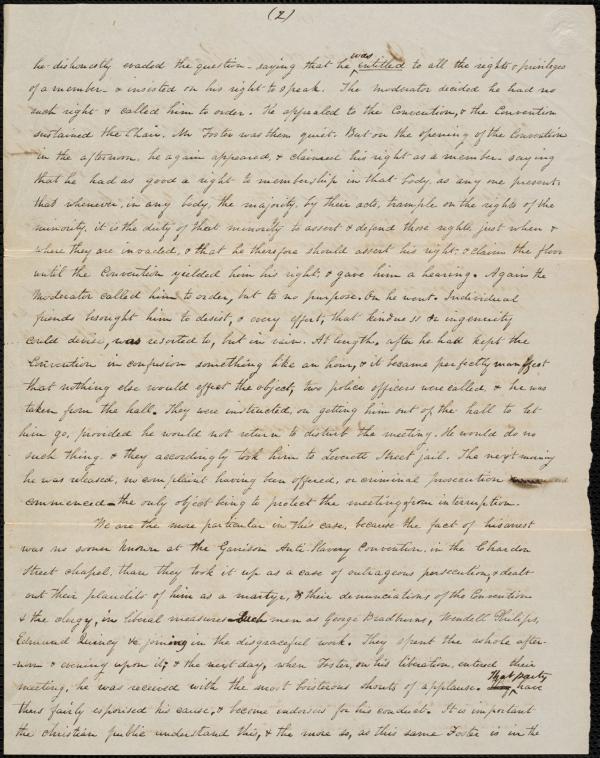 (2)
he dishonestly evaded the question - saying that he was entitled to all the rights & privileges
of a member - & insisted on his right to speak. The moderator decided he had no
such right & called him to order. He appealed to the Convention, & the Convention
sustained the Chair. Mr Foster was then quiet. But on the opening of the Convention
in the afternoon, he again appeared, & claimed his right as a member - saying
that he had as good a right to membership in that body, as any one present,
that whenever, in any body, the majority, by their acts, trample on the rights of the
minority, it is the duty of that minority to assert & defend those rights, just when &
where they are invaded, & that he therefore should assert his right, & claim the floor
until the Convention yielded him his right, & gave him a hearing. Again the
Moderator called him to order, but to no purpose. On he went. Individual
friends besought him to desist, & every effort, that kindness or ingenuity
could devise, was resorted to, but in vain. At length, after he had kept the
Convention in confusion something like an hour, & it became perfectly manifest
that nothing else would effect the object, two police officers were called, & he was
taken from the hall. They were instructed, on getting him out of the hall to let
him go, provided he would not return to disturb the meeting. He would do no
such thing, & they accordingly took him to Leverett Street jail. The next morning
he was released, no complaint having been offered, or criminal prosecution
commenced - the only object being to protect the meeting from interruption.
We are the more particular in this case, because the fact of his arrest
was no sooner known at the Garrison Anti Slavery Convention, in the Chardon
Street chapel, than they took it up as a case of outrageous persecution, & dealt
out their plaudits of him as a martyr, & their denunciations of the Convention
& the clergy, in liberal measures - Such men as George Bradburn, Wendell Philips,
Edmund Quincy &c joining in the disgraceful work. They spent the whole after-
noon & evening upon it; & the next day, when Foster, on his liberation, entered their
meeting, he was received with the most boisterous shouts of applause. That party have
thus fairly espoused his cause, & become endorsers for his conduct. It is important
the christian public understand this, & the more so, as this same Foster is in the